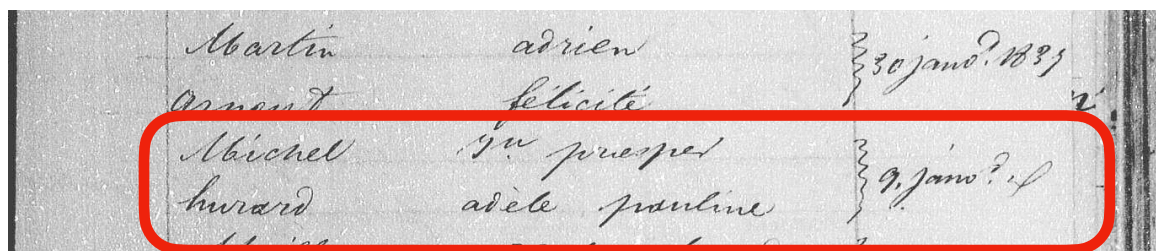 Martin adrien 30 janv.r 1835
arnout félicité
Michel jn prosper 9. janv.r d
hurard adèle pauline